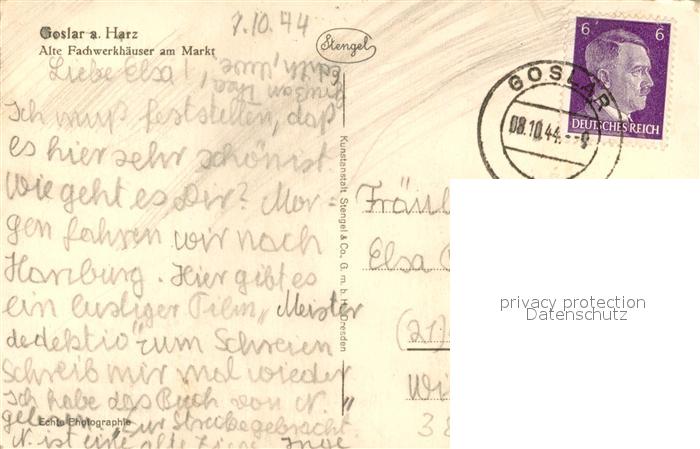 Goslar a. Harz
Alte Fachwerkhäuser am Markt
7.10.44
Stengel
6 6
DEUTSCHES REICH
GOSLAR
08.10.44.--9
Liebe Elsa!
Ich muß feststellen, daß
es hier sehr schön ist
Wie geht es Dir? Mor-
gen fahren wir nach
Hamburg. Hier gibt es
ein lustiger Film „Meister
dedektiv" zum Schreien
Schreib mir mal wieder
Ich habe das Buch von N.
gelesen. „Zur Strecke gebracht."
N. ist eine alte Inge
Echte Photographie
Kunstanstalt Stengel & Co., G. m. b. H., Dresden
Fräul
Elsa
(21)
3
privacy protection
Datenschutz